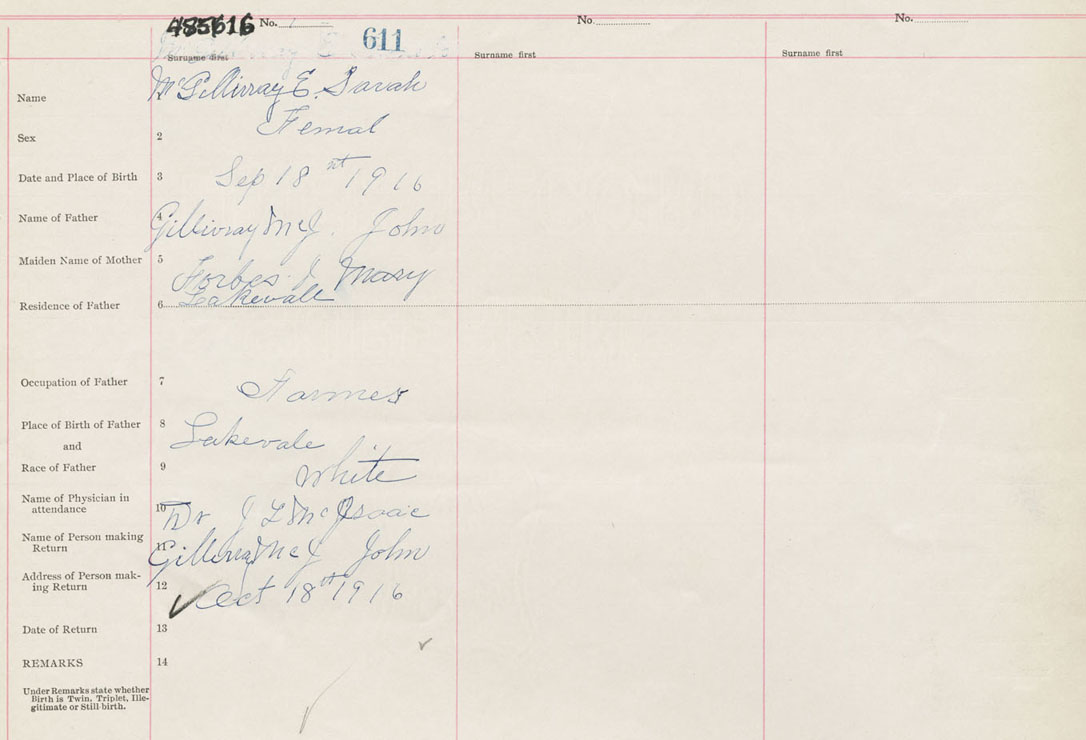 485616 No. No. No.
611
Surname first Surname first Surname first
Name 1 McGillivray E. Sarah
Sex 2 Femal
Date and Place of Birth 3 Sep 18 st 1916
Name of Father 4 Gillivray Mc J. John
Maiden Name of Mother 5 Forbes J Mary
Residence of Father 6 Lakevale
Occupation of Father 7 Farmer
Place of Birth of Father 8 Lakevale
and
Race of Father 9 White
Name of Physician in
attendance 10 Dr J L McIsaac
Name of Person making
Return 11 Gillivray Mc J John
Address of Person mak-
ing Return 12 Oct 18 st 1916
Date of Return 13
REMARKS 14
Under Remarks state whether
Birth is Twin, Triplet, Ille-
gitimate or Still-birth.